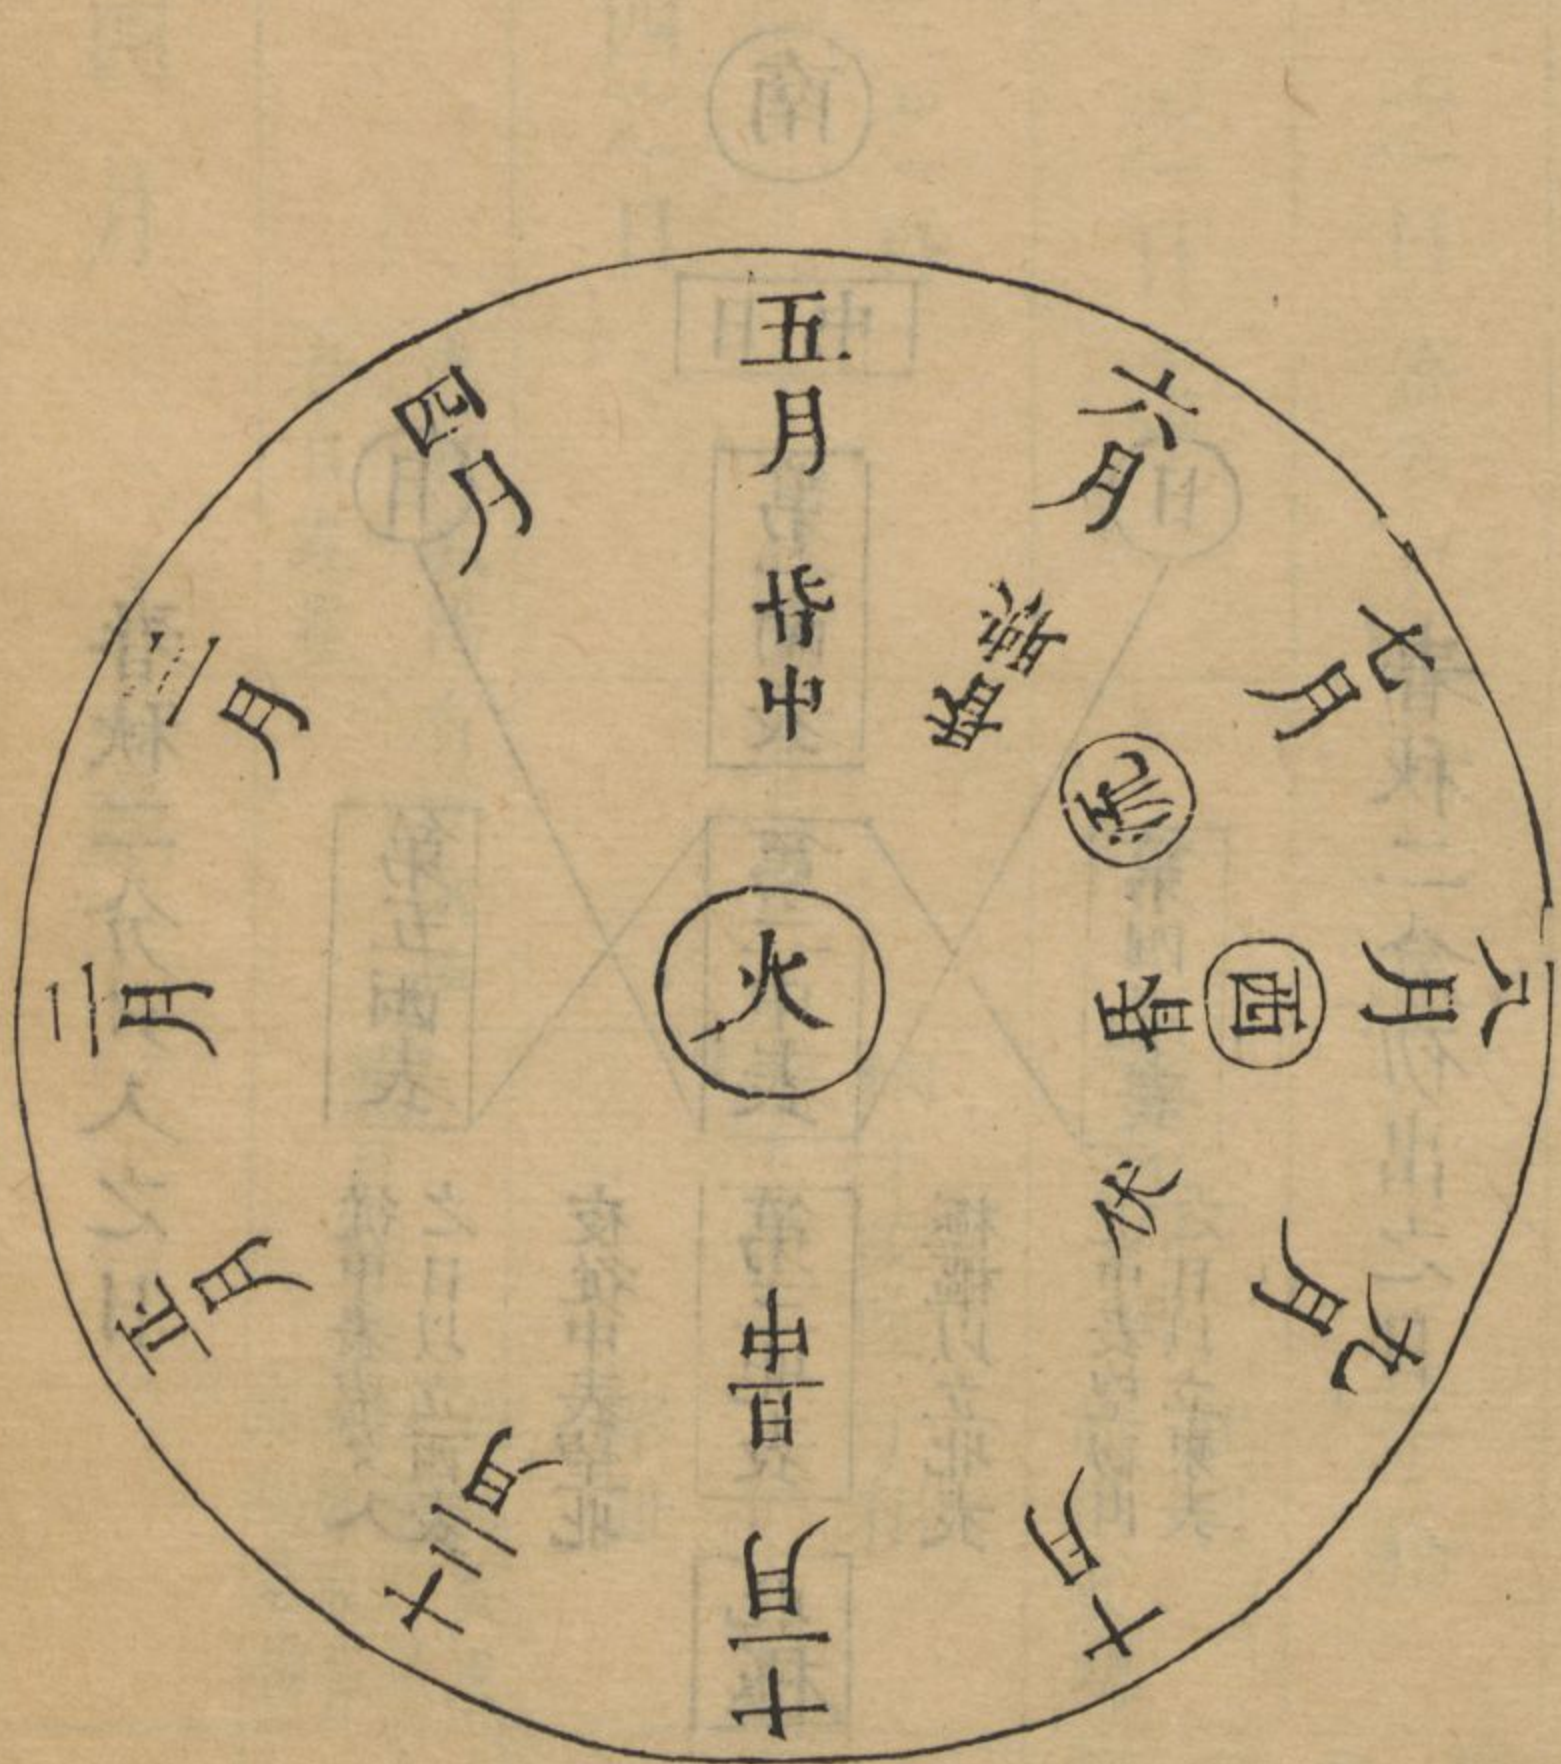 五月
昏中
六月
七月
流
八月
西
昏
九月
伏
十月
十一月
旦中
十二月
正月
二月
三月
四月
火